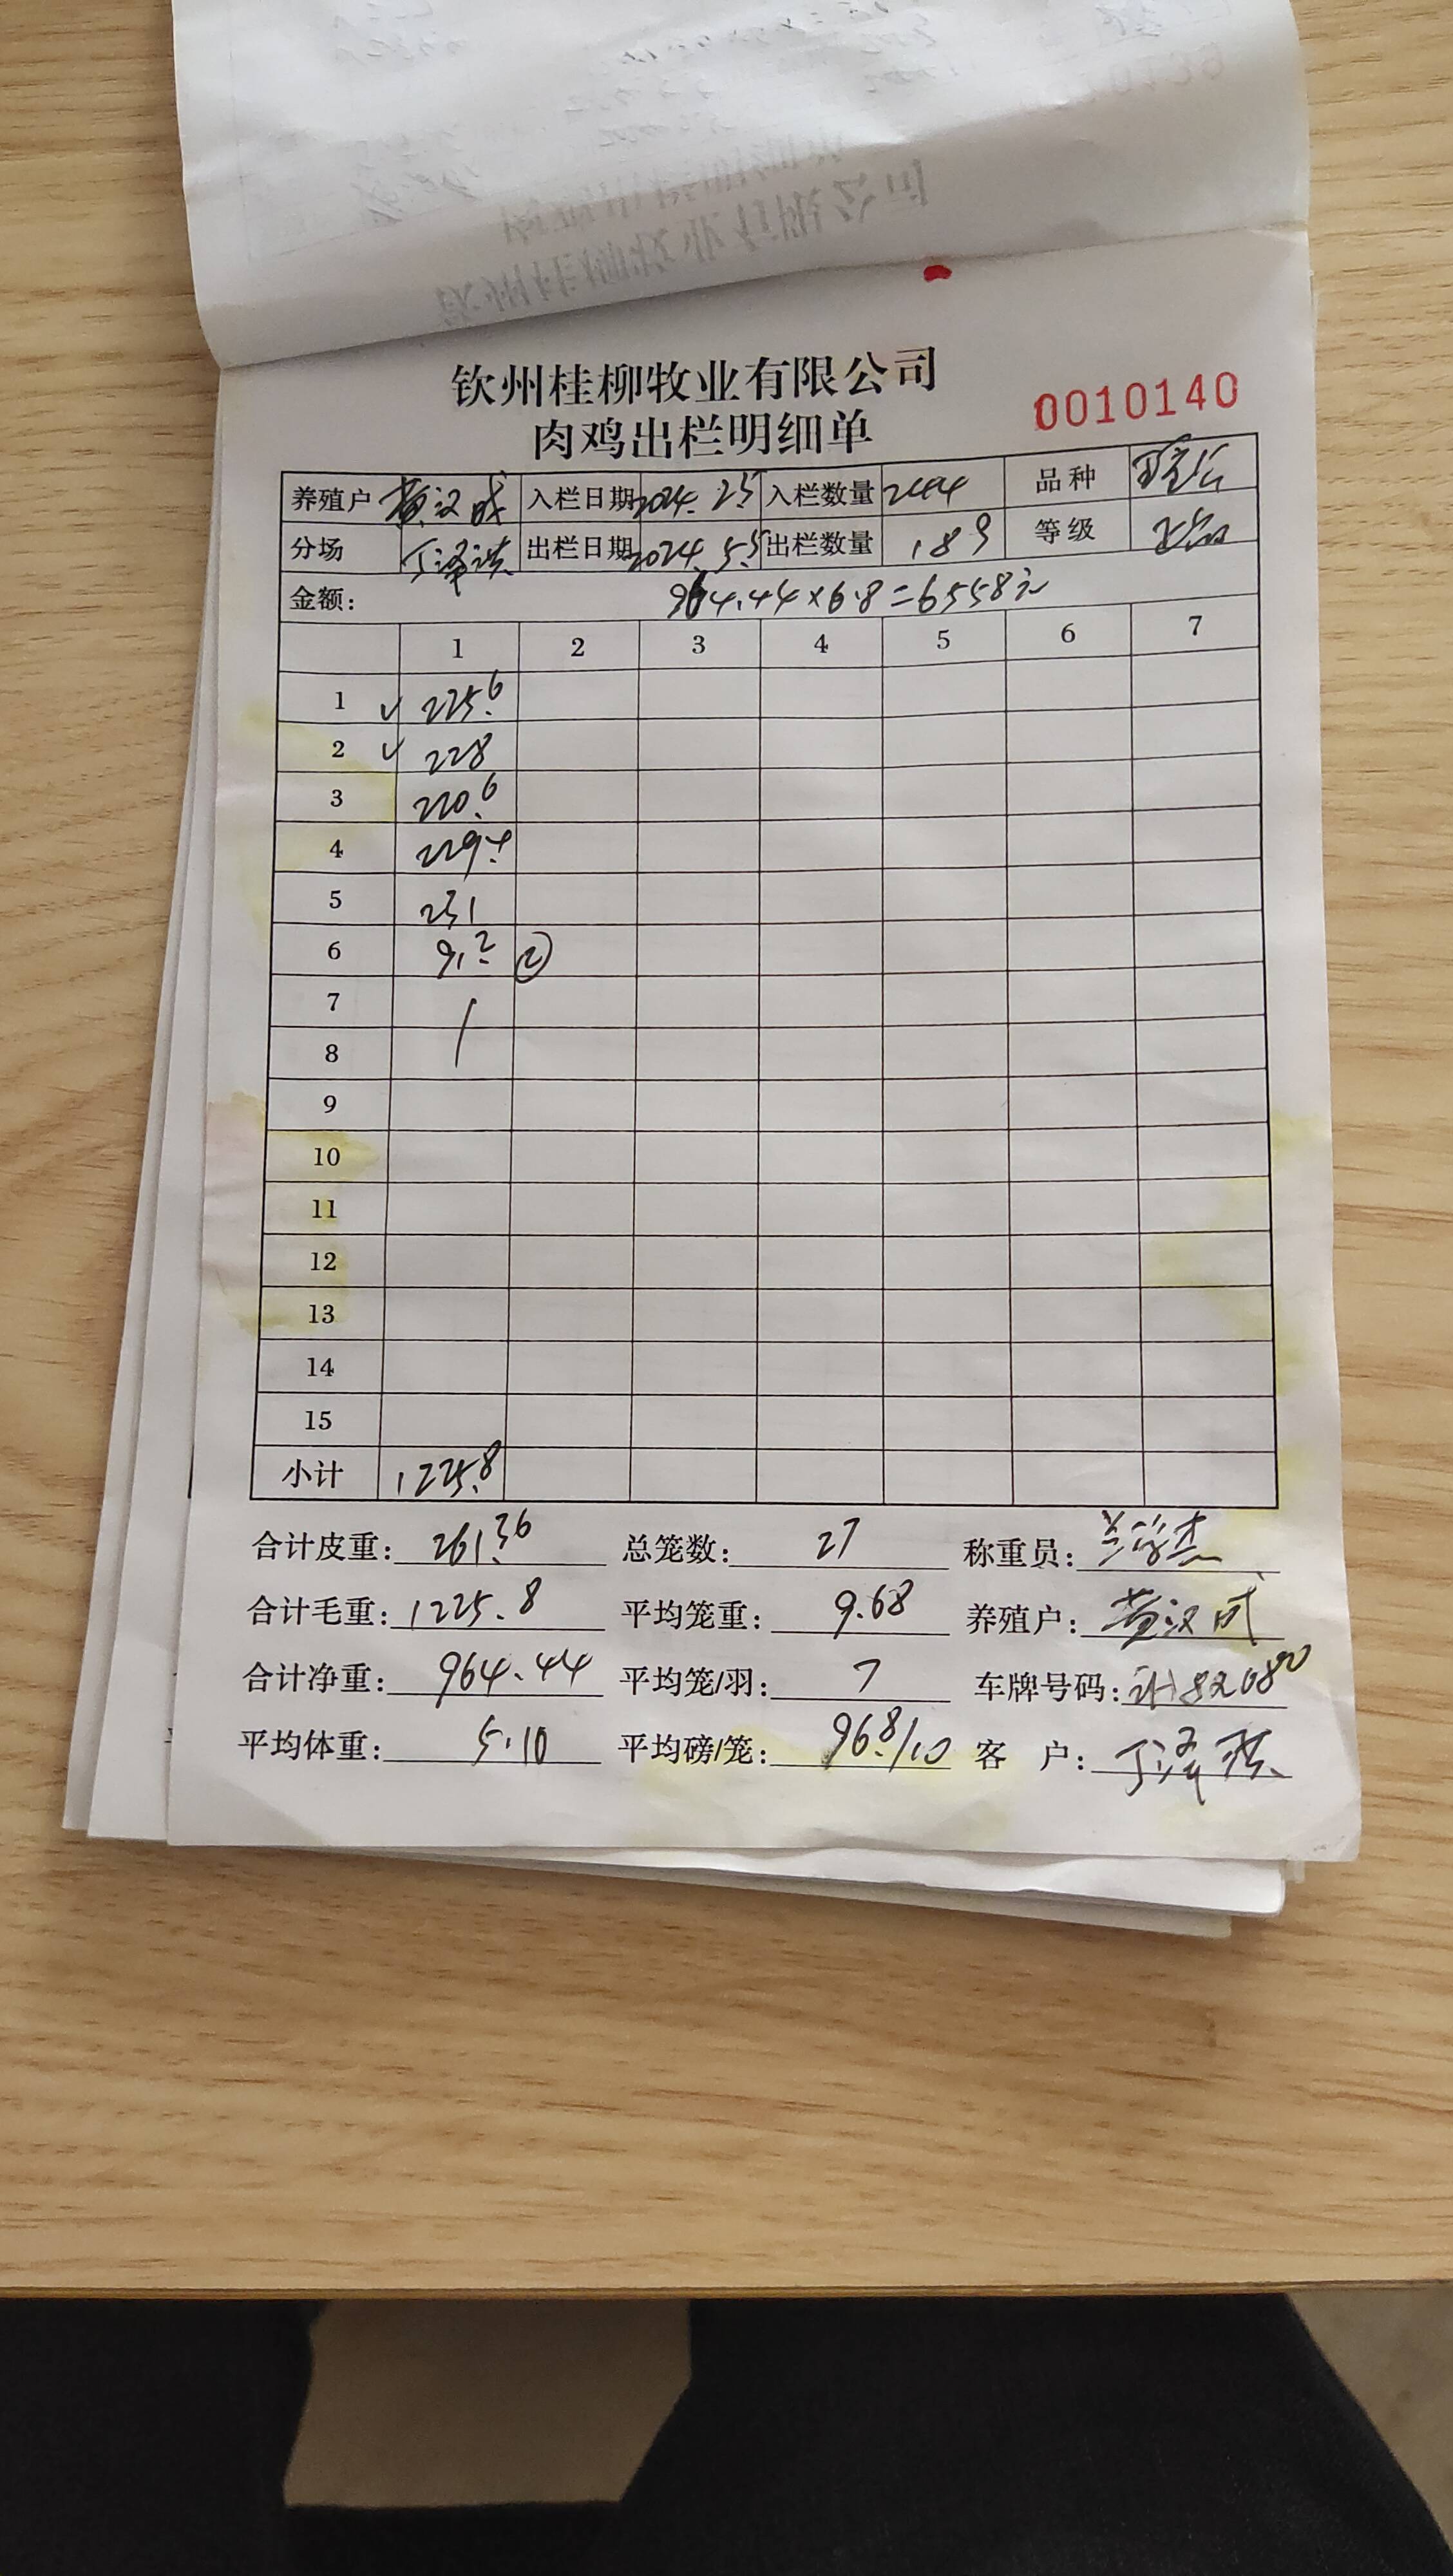 钦州桂柳牧业有限公司
肉鸡出栏明细单
0010140
养殖户 黄汉成 入栏日期 2024.2.5 入栏数量 2444 品种
分场 丁泽洪 出栏日期 2024.5.5 出栏数量 189 等级
金额: 964.44×6.8=6558元
1 2 3 4 5 6 7
1 ✓ 225.6
2 ✓ 228
3 220.6
4 229.4
5 231
6 91.2 ②
7
8
9
10
11
12
13
14
15
小计 1225.8
合计皮重: 261.36 总笼数: 27 称重员:
合计毛重: 1225.8 平均笼重: 9.68 养殖户: 黄汉成
合计净重: 964.44 平均笼/羽: 7 车牌号码:
平均体重: 5.10 平均磅/笼: 96.8/10 客 户: 丁泽洪